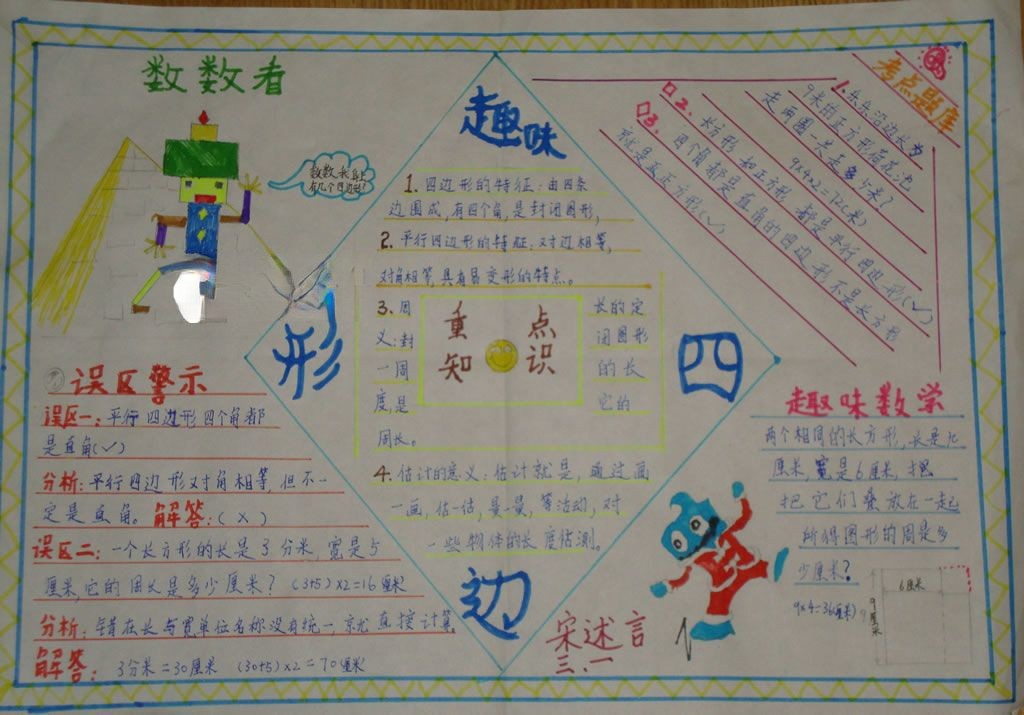 数数看
数数我身上
有几个四边形?
趣味
四
边
形
1. 四边形的特征:由四条
边围成,有四个角,是封闭图形,
2. 平行四边形的特征:对边相等,
对角相等具有易变形的特点。
3. 周长的定
义:封闭图形
一周的长
度,是它的
周长。
重点
知识
4. 估计的意义:估计就是,通过画
一画,估一估,量一量,等活动,对
一些物体的长度估测。
考点题库
1. 乐乐沿边长为
9米的正方形荷花池
走两圈一共走多少米?
9×4×2=72(米)
2. 长方形和正方形都是平行四边形(✓)
3. 四个角都是直角的四边形不是长方形
就是正方形(✓)
误区警示
误区一:平行四边形四个角都
是直角(✓)
分析:平行四边形对角相等,但不一
定是直角。解答:(×)
误区二:一个长方形的长是3分米,宽是5
厘米,它的周长是多少厘米?(3+5)×2=16厘米
分析:错在长与宽单位名称没有统一,就直接计算。
解答:3分米=30厘米 (30+5)×2=70厘米
趣味数学
两个相同的长方形,长是九
厘米,宽是6厘米,把
把它们叠放在一起
所得图形的周是多
少厘米?
9×4=36(厘米)
6厘米
9厘米
宋述言
三、一